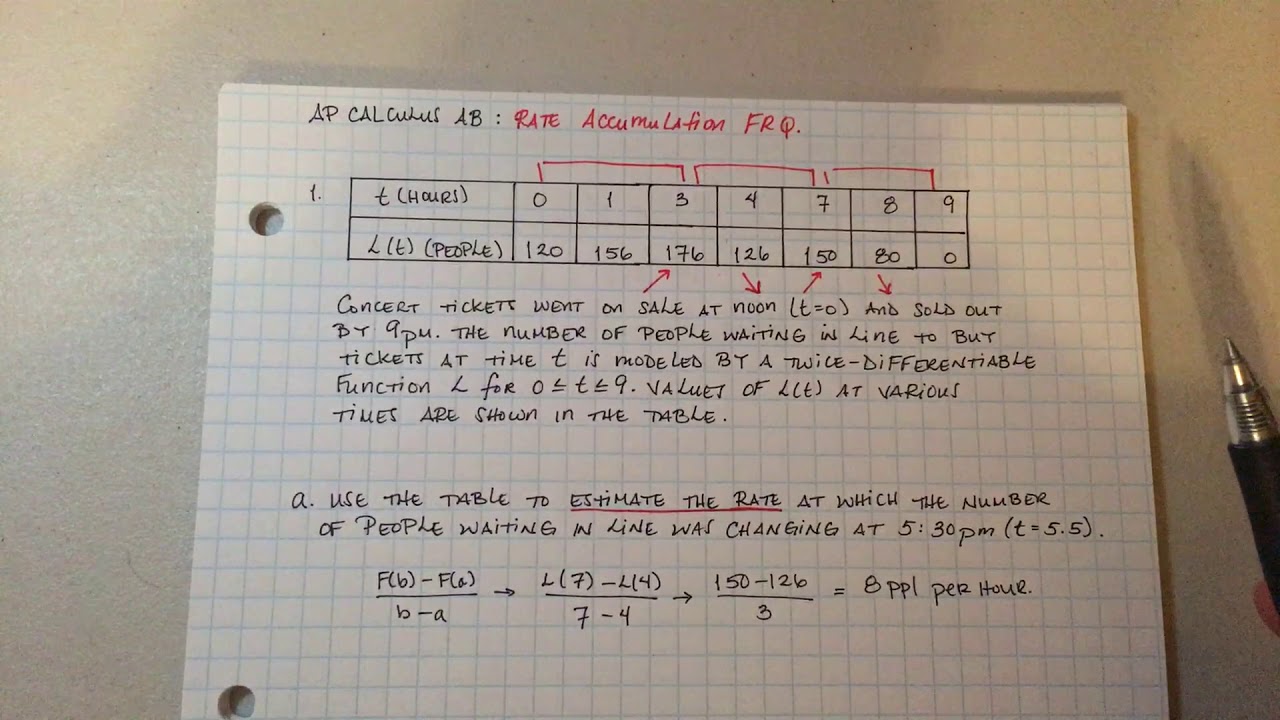 AP CALCULUS AB: RATE ACCUMULATION FRQ.
1. t (HOURS) 0 1 3 4 7 8 9
L(t) (PEOPLE) 120 156 176 126 150 80 0
CONCERT TICKETS WENT ON SALE AT NOON (t=0) AND SOLD OUT
BY 9pm. THE NUMBER OF PEOPLE WAITING IN LINE TO BUY
TICKETS AT TIME t IS MODELED BY A TWICE-DIFFERENTIABLE
FUNCTION L FOR 0 ≤ t ≤ 9. VALUES OF L(t) AT VARIOUS
TIMES ARE SHOWN IN THE TABLE.
a. USE THE TABLE TO ESTIMATE THE RATE AT WHICH THE NUMBER
OF PEOPLE WAITING IN LINE WAS CHANGING AT 5:30pm (t=5.5).
F(b)-F(a) / b-a → L(7)-L(4) / 7-4 → 150-126 / 3 = 8 ppl per HOUR.